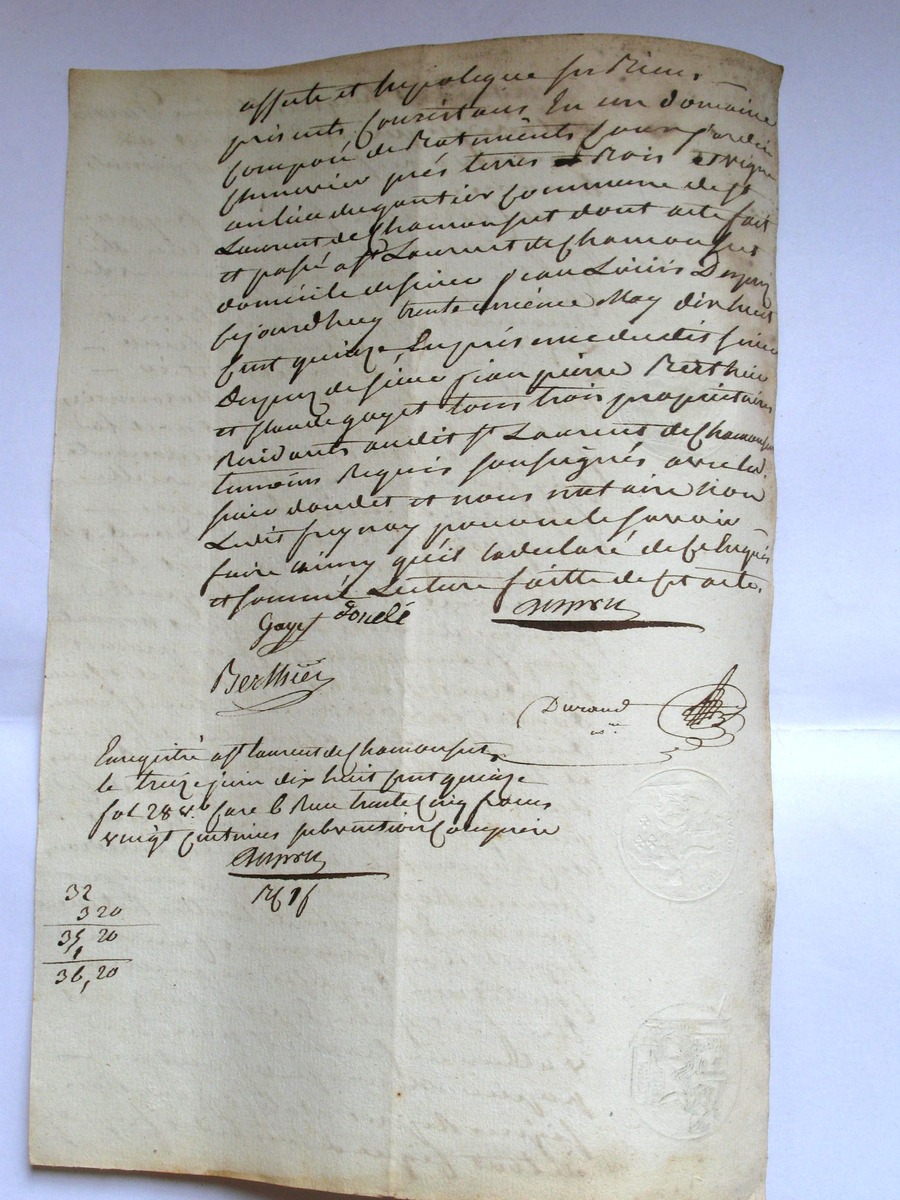 affecte et hipoteque ses Biens
présents Consistans En un domaine
Composé de Batiments Cour jardin
chenevier prés terres Bois et vigne
au lieu du gautier Commune de st
Laurent de Chamousset dont acte fait
et passé a st Laurent de Chamousset
domicile de sieur jean Louis Dupuy
Cejourdhuy trente unieme May dix huit
Cent quinze En présence dudit sieur
Dupuy de sieur jean pierre Berthier
et Claude gayet tous trois propriétaires
Residants audit st Laurent de Chamousset
temoins Requis soussignés avec led.
sieur doudet et nous notaire non
Ledit pour ne le savoir
faire ainsy qu'il la déclaré de Ce Enquis
et sommé Lecture faitte de Cet acte.
Gayet
Berthier
Durand
Enregistré a st laurent de Chamousset
le treize juin dix huit Cent quinze
fol 28 v.º Case 6 Reçu trente Cinq francs
vingt Centimes subvention Comprise
32
3 20
35, 20
1
36, 20